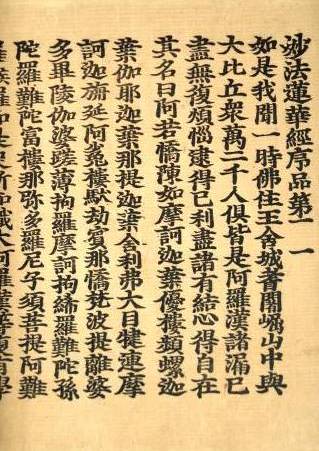 妙法蓮華經序品第一
如是我聞一時佛住王舍城耆闍崛山中與
大比丘衆萬二千人俱皆是阿羅漢諸漏已
盡無復煩惱逮得己利盡諸有結心得自在
其名曰阿若憍陳如摩訶迦葉優樓頻螺迦
葉伽耶迦葉那提迦葉舍利弗大目犍連摩
訶迦旃延阿㝹樓馱劫賓那憍梵波提離婆
多畢陵伽婆蹉薄拘羅摩訶拘絺羅難陀孫
陀羅難陀富樓那弥多羅尼子須菩提阿難